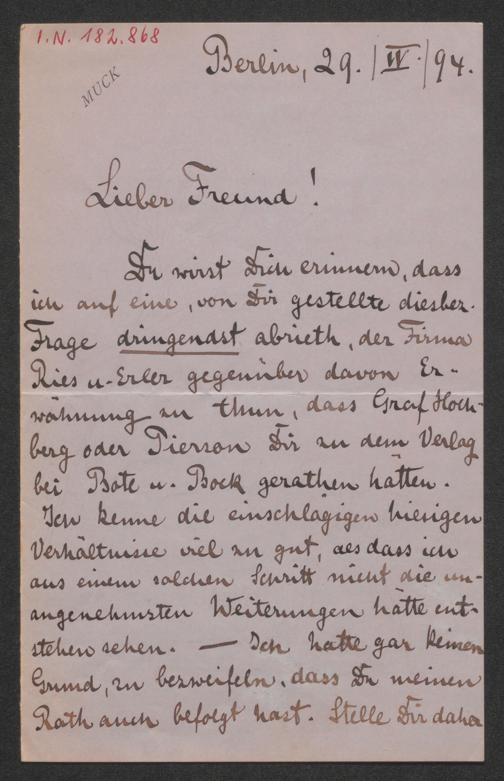 I.N. 182.868
MUCK
Berlin, 29./IV./94.
Lieber Freund!
Du wirst Dich erinnern, dass
ich auf eine, von Dir gestellte diesbez.
Frage dringendst abrieth, der Firma
Ries u. Erler gegenüber davon Er-
wähnung zu thun, dass Graf Hoch-
berg oder Pierson Dir zu dem Verlag
bei Bote u. Bock gerathen hätten.
Ich kenne die einschlägigen hiesigen
Verhältnisse viel zu gut, als dass ich
aus einem solchen Schritt nicht die un-
angenehmsten Weiterungen hätte ent-
stehen sehen. — Ich hatte gar keinen
Grund, zu bezweifeln, dass Du meinen
Rath auch befolgt hast. Stelle Dir daher